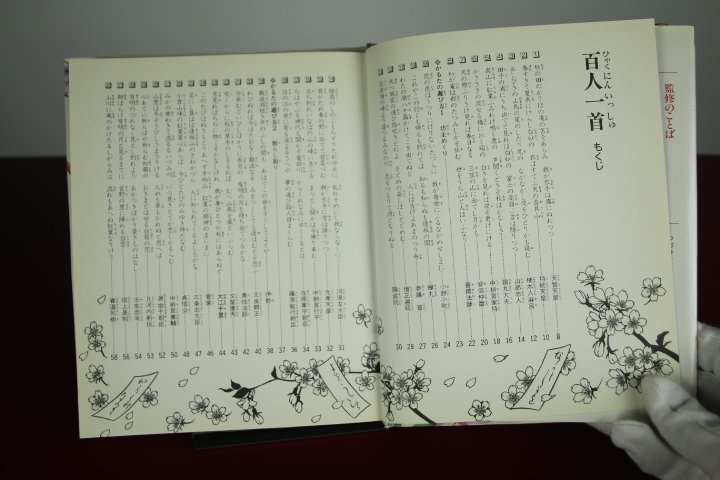 監修のことば
百人一首 もくじ
ひゃくにんいっしゅ
秋の田のかりほの庵の苫をあらみ わが衣手は露にぬれつつ 天智天皇 8
春すぎて夏来にけらし白妙の 衣ほすてふ天の香具山 持統天皇 10
あしびきの山鳥の尾のしだり尾の ながながし夜をひとりかも寝む 柿本人麻呂 12
田子の浦にうち出でて見れば白妙の 富士の高嶺に雪は降りつつ 山部赤人 14
奥山に紅葉ふみわけ鳴く鹿の 声聞くときぞ秋は悲しき 猿丸大夫 16
かささぎの渡せる橋に置く霜の 白きを見れば夜ぞ更けにける 中納言家持 18
天の原ふりさけ見れば春日なる 三笠の山に出でし月かも 安倍仲麿 20
わが庵は都のたつみしかぞ住む 世をうぢ山と人はいふなり 喜撰法師 22
❖かるたの遊び方1 坊主めくり 23
花の色はうつりにけりないたづらに わが身世にふるながめせしまに 小野小町 24
これやこの行くも帰るも別れては 知るも知らぬも逢坂の関 蝉丸 26
わたの原八十島かけて漕ぎ出でぬと 人には告げよあまのつり舟 参議 篁
天つ風雲の通ひ路吹きとぢよ をとめの姿しばしとどめむ 僧正遍昭 28
筑波嶺の峰より落つるみなの川 恋ぞつもりて淵となりぬる 陽成院 30
陸奥のしのぶもぢずりたれゆゑに 乱れそめにしわれならなくに 河原左大臣 31
君がため春の野に出でて若菜つむ わが衣手に雪は降りつつ 光孝天皇 32
立ち別れいなばの山の峰に生ふる まつとし聞かば今帰り来む 中納言行平 33
ちはやぶる神代も聞かず竜田川 からくれなゐに水くくるとは 在原業平朝臣 34
住の江の岸に寄る波よるさへや 夢の通ひ路人目よくらむ 藤原敏行朝臣 36
❖かるたの遊び方2 散らし取り 37
難波潟短き芦のふしの間も あはでこの世を過ぐしてよとや 伊勢 38
わびぬれば今はた同じ難波なる みをつくしても逢はむとぞ思ふ 元良親王 40
今来むといひしばかりに長月の 有明の月を待ち出でつるかな 素性法師 42
吹くからに秋の草木のしをるれば むべ山風を嵐といふらむ 文屋康秀 43
月見れば千々にものこそ悲しけれ わが身ひとつの秋にはあらねど 大江千里 44
このたびはぬさも取りあへず手向山 紅葉の錦神のまにまに 菅家 46
名にし負はば逢坂山のさねかづら 人に知られでくるよしもがな 三条右大臣 47
小倉山峰の紅葉葉心あらば 今ひとたびのみゆき待たなむ 貞信公 48
みかの原わきて流るるいづみ川 いつ見きとてか恋しかるらむ 中納言兼輔 49
山里は冬ぞさびしさまさりける 人目も草もかれぬと思へば 源宗于朝臣 50
心あてに折らばや折らむ初霜の おきまどはせる白菊の花 凡河内躬恒 52
有明のつれなく見えし別れより あかつきばかり憂きものはなし 壬生忠岑 54
朝ぼらけ有明の月と見るまでに 吉野の里に降れる白雪 坂上是則 56
山川に風のかけたるしがらみは 流れもあへぬ紅葉なりけり 春道列樹 58